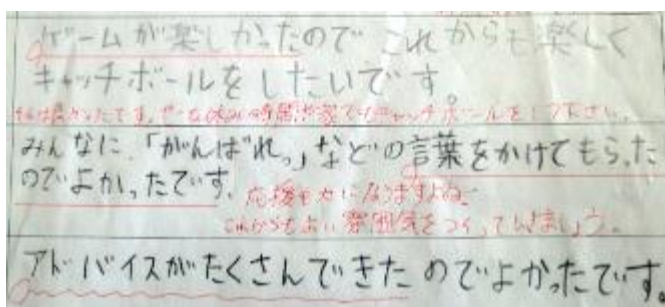 ゲームが楽しかったので これからも楽しく
キャッチボールをしたいです。
それは良かったです。ぜひな休み時間や家でもキャッチボールをして下さい。
みんなに、「がんばれっ」などの言葉をかけてもらった
のでよかったです。
応援も力になりますよね。
これからもよい雰囲気をつくっていきましょう。
アドバイスがたくさんできたのでよかったです。